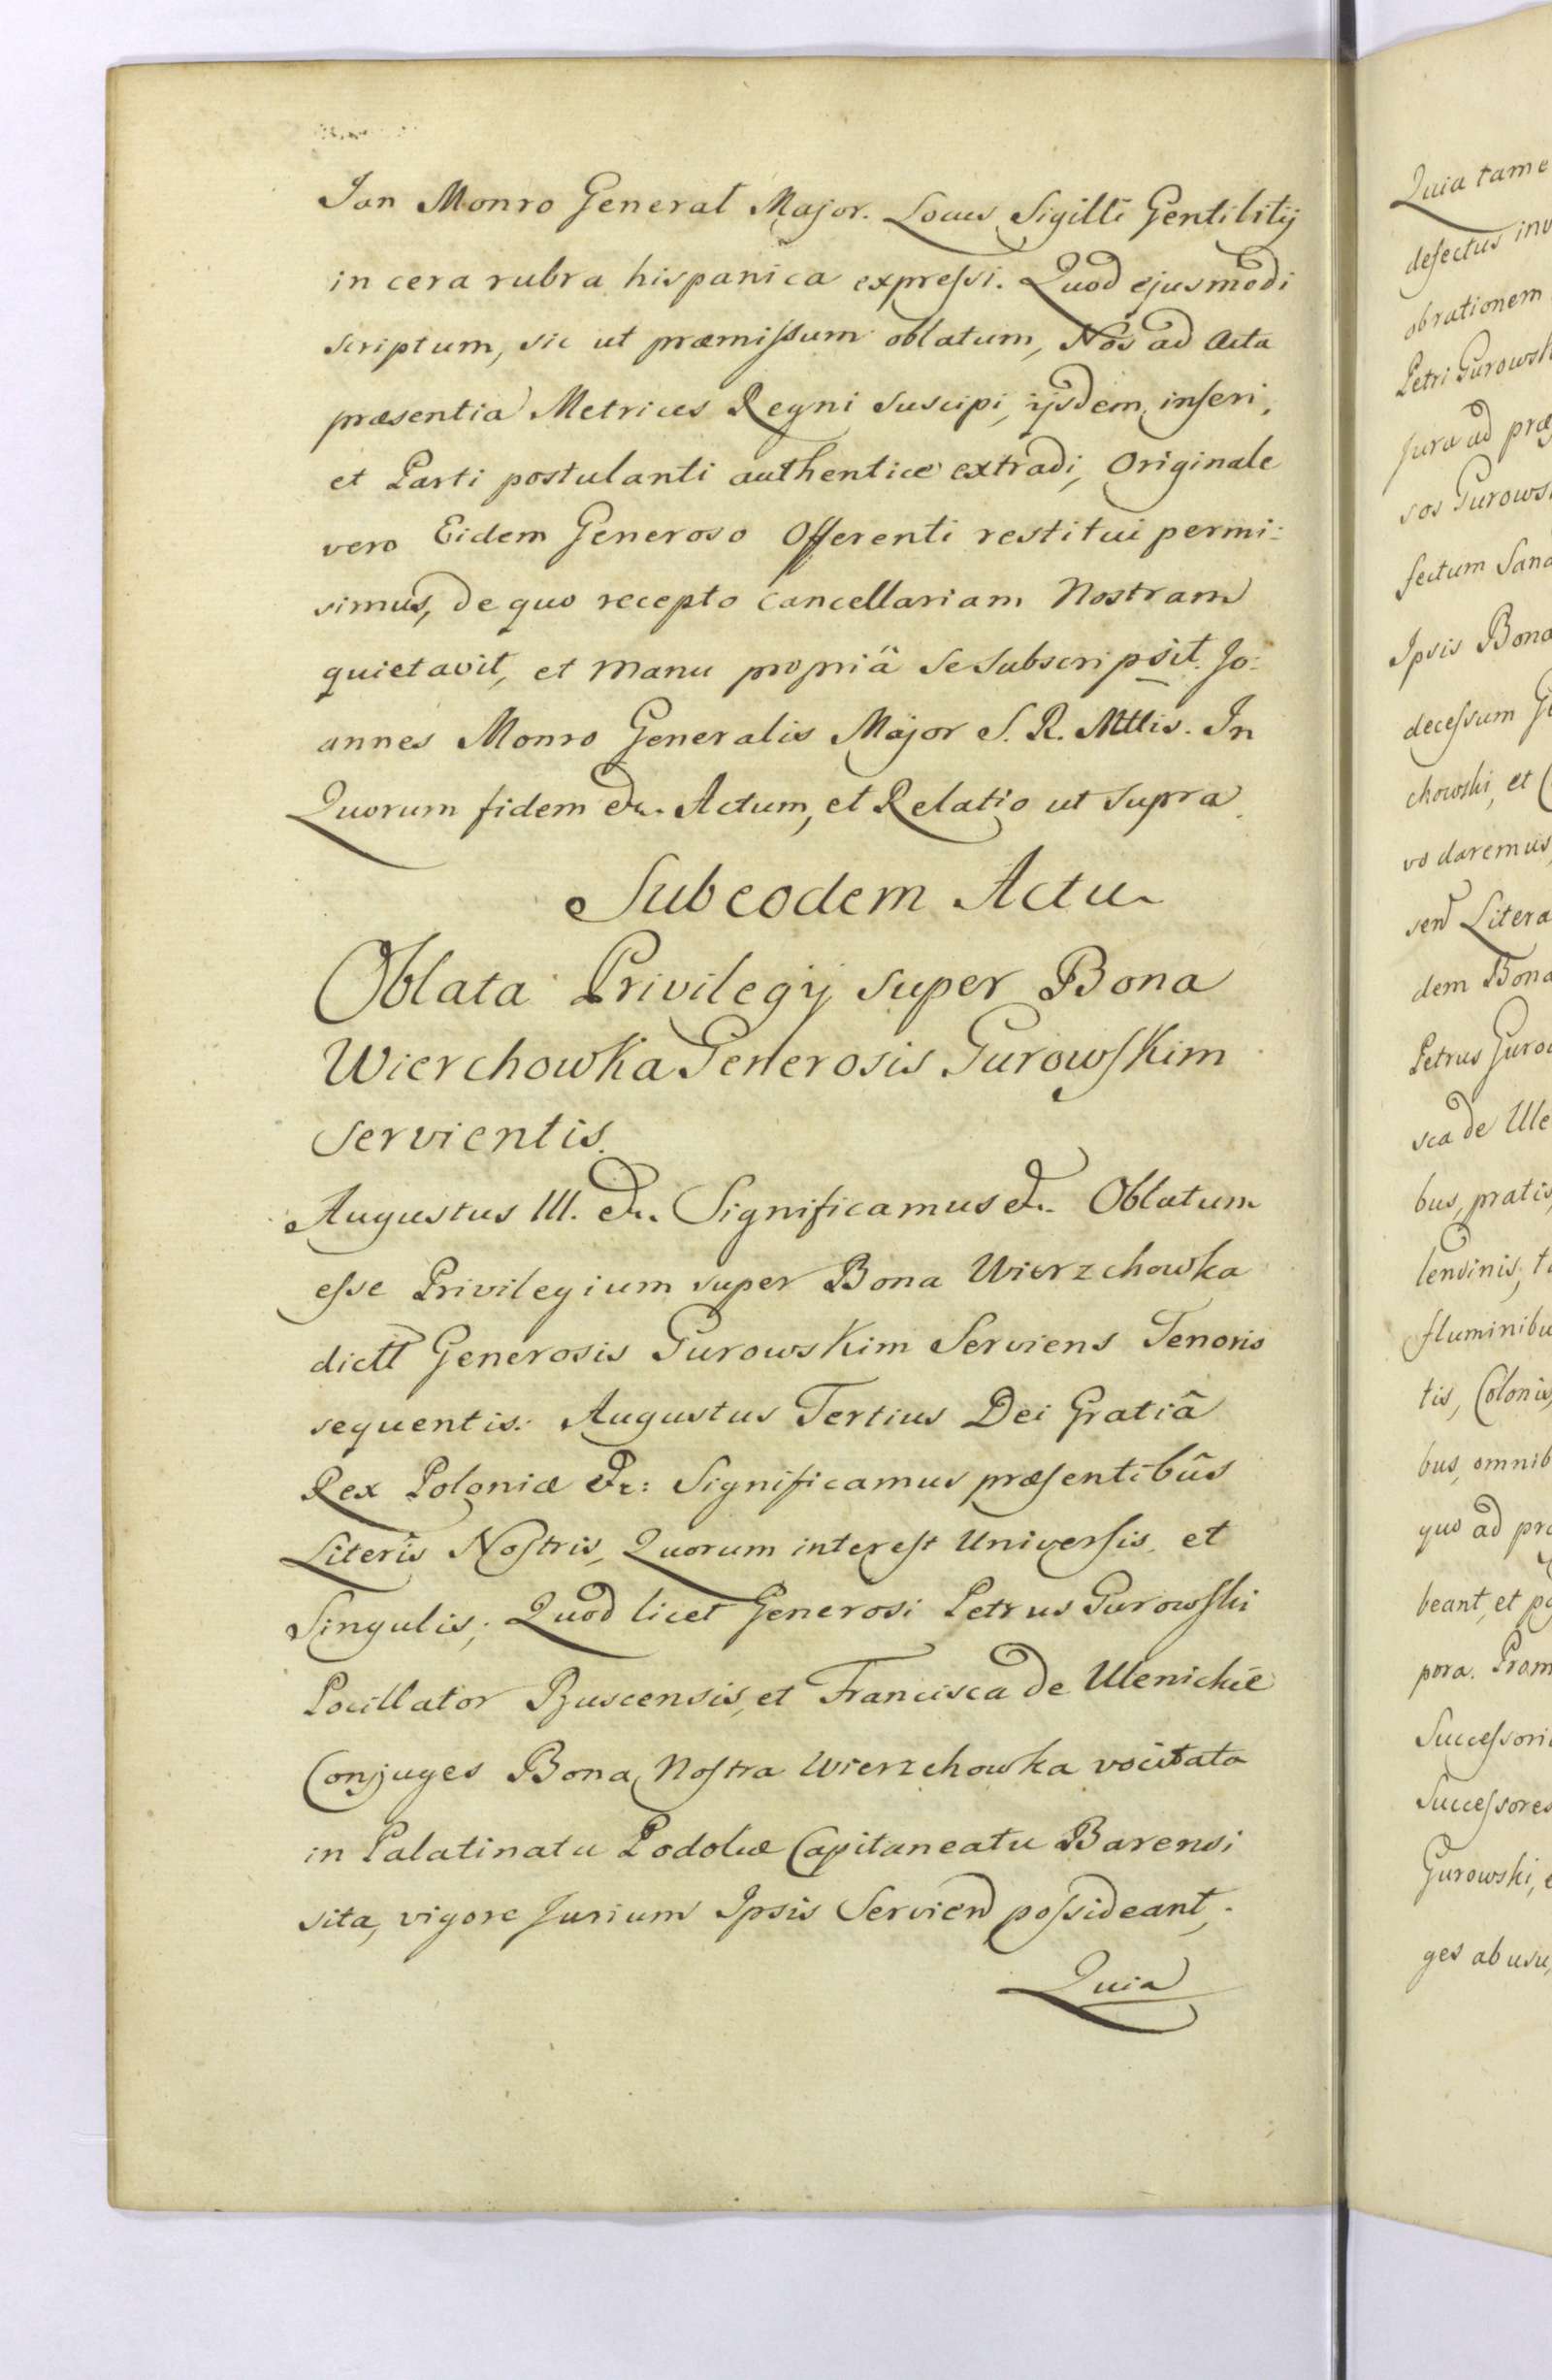 Jan Monro General Major. Locus Sigilli Gentilitij
in cera rubra hispanica expreſsi. Quod ejusmodi
scriptum, sic ut præmiſsum oblatum, Nos ad Acta
præsentia Metrices Regni suscipi, ijsdem inſeri,
et Parti postulanti authenticè extradi, Originale
vero Eidem Generoso Offerenti restitui permi:
simus, de quo recepto Cancellariam Nostram
quietavit, et manu propriâ se subscripsit. Jo:
annes Monro Generalis Major S. R. Mttis. In
Quorum fidem &c. Actum, et Relatio ut supra.
Sub eodem Actu
Oblata Privilegij super Bona
Wierchowka Generosis Gurowſkim
servientis.
Augustus III. &c. Significamus &c. Oblatum
eſse Privilegium super Bona Wierzchowka
dictt Generosis Gurowskim Serviens Tenoris
sequentis: Augustus Tertius Dei Gratiâ
Rex Poloniæ &c: Significamus præſentibûs
Literis Noſtris, Quorum intereſt Univerſis, et
Singulis; Quod licet Generosi Petrus Gurowſki
Pocillator Buscensis, et Francisca de Ulenickie
Conjuges Bona Noſtra Wierzchowka vocitata
in Palatinatu Podoliæ Capitaneatu Barensi
sita, vigore Jurium Ipsis Serviend poſsideant,
Quia
Quia tame
defectus inv
ob rationem
Petri Gurowsk
Jura ad præ
sos Gurows
fectum Sand
Ipsis Bona
deceſsum G
chowski, et
vo daremus,
send Litera
dem Bona
Petrus Gurow
sca de Ule
bus, pratis,
lendinis, t
fluminibu
tis, Colonis,
bus, omnib
quo ad pro
beant, et po
pora. Prom
Succeſsori
Succeſsores
Gurowski, e
ges ab usu,